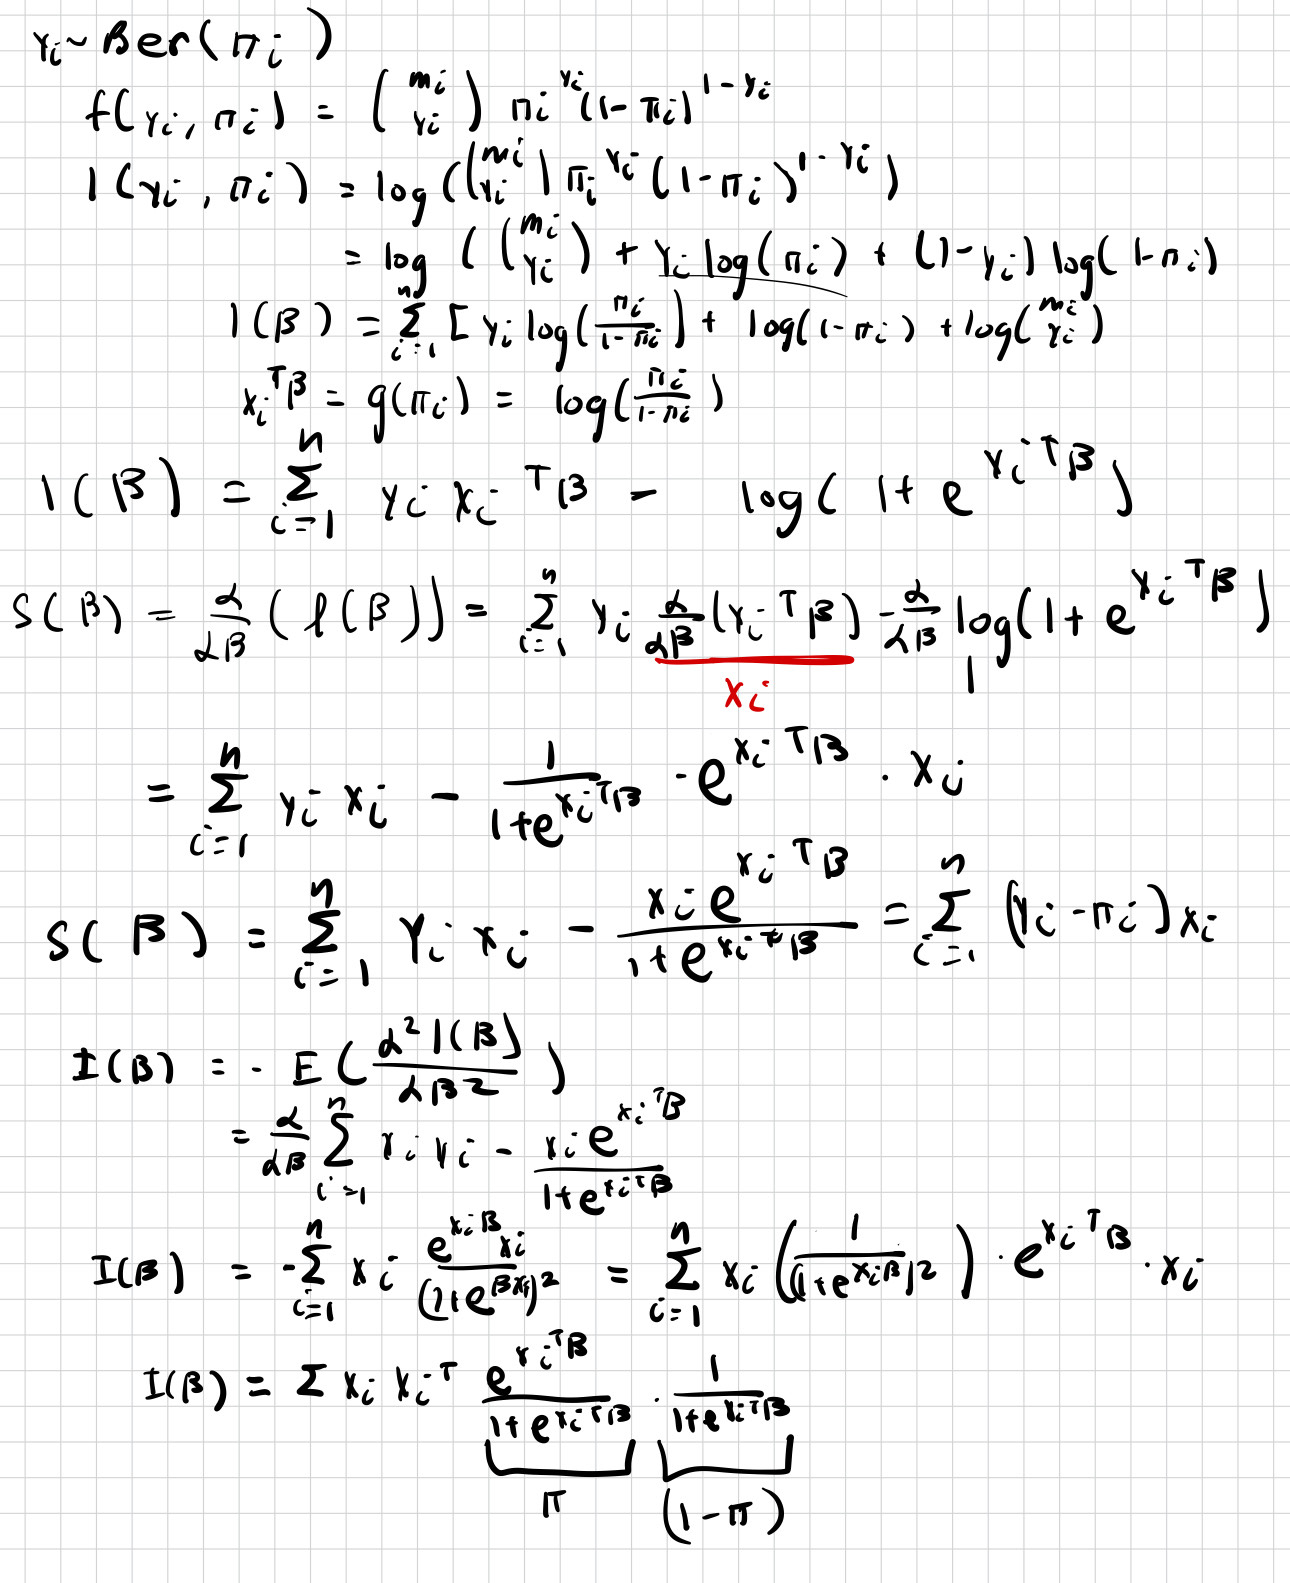 Yi ~ Ber(πi)
f(Yi, πi) = (mi Yi) πi^Yi (1-πi)^(1-Yi)
l(Yi, πi) = log((mi Yi) πi^Yi (1-πi)^(1-Yi))
= log ((mi Yi) + Yi log(πi) + (1-Yi) log(1-πi)
l(β) = Σ_{i=1}^n [Yi log(πi/(1-πi)) + log(1-πi) + log(mi Yi)
xi^Tβ = g(πi) = log(πi/(1-πi))
l(β) = Σ_{i=1}^n Yi xi^Tβ - log(1+e^(xi^Tβ))
S(β) = d/dβ (l(β)) = Σ_{i=1}^n Yi d/dβ(xi^Tβ) - d/dβ log(1+e^(xi^Tβ))
xi
= Σ_{i=1}^n Yi xi - 1/(1+e^(xi^Tβ)) · e^(xi^Tβ) · xi
S(β) = Σ_{i=1}^n Yi xi - xi e^(xi^Tβ)/(1+e^(xi^Tβ)) = Σ_{i=1}^n (Yi-πi)xi
I(β) = - E(d²l(β)/dβ²)
= d/dβ Σ_{i=1}^n xi Yi - xi e^(xi^Tβ)/(1+e^(xi^Tβ))
I(β) = -Σ_{i=1}^n xi e^(xiβ) xi/(1+e^(βxi))² = Σ_{i=1}^n xi (1/(1+e^(xiβ))²) · e^(xi^Tβ) · xi
I(β) = Σ xi xi^T e^(xi^Tβ)/(1+e^(xi^Tβ)) · 1/(1+e^(xi^Tβ))
π (1-π)